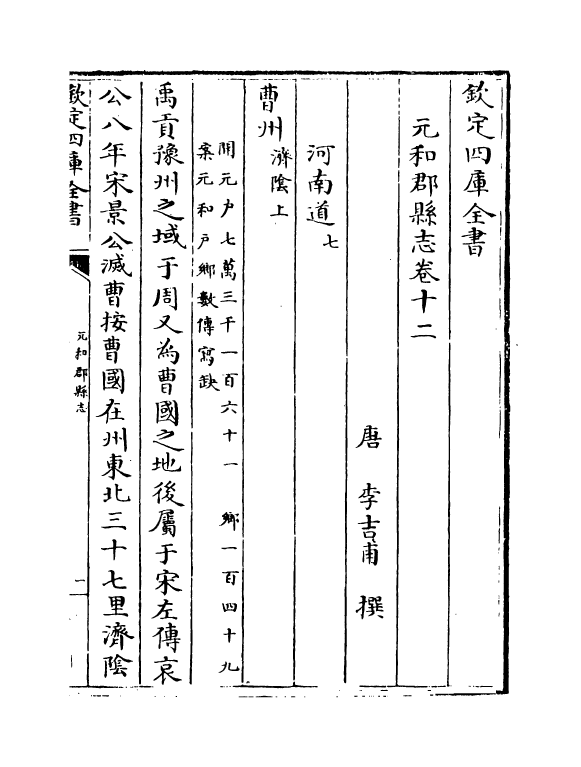 欽定四庫全書
元和郡縣志卷十二
唐 李吉甫 撰
河南道七
曹州濟陰上
開元户七萬三千一百六十一 鄉一百四十九
案元和戸鄉數傳寫缺
禹貢豫州之域于周又為曹國之地後屬于宋左傳哀
公八年宋景公滅曹按曹國在州東北三十七里濟陰
欽定四庫全書
元和郡縣志